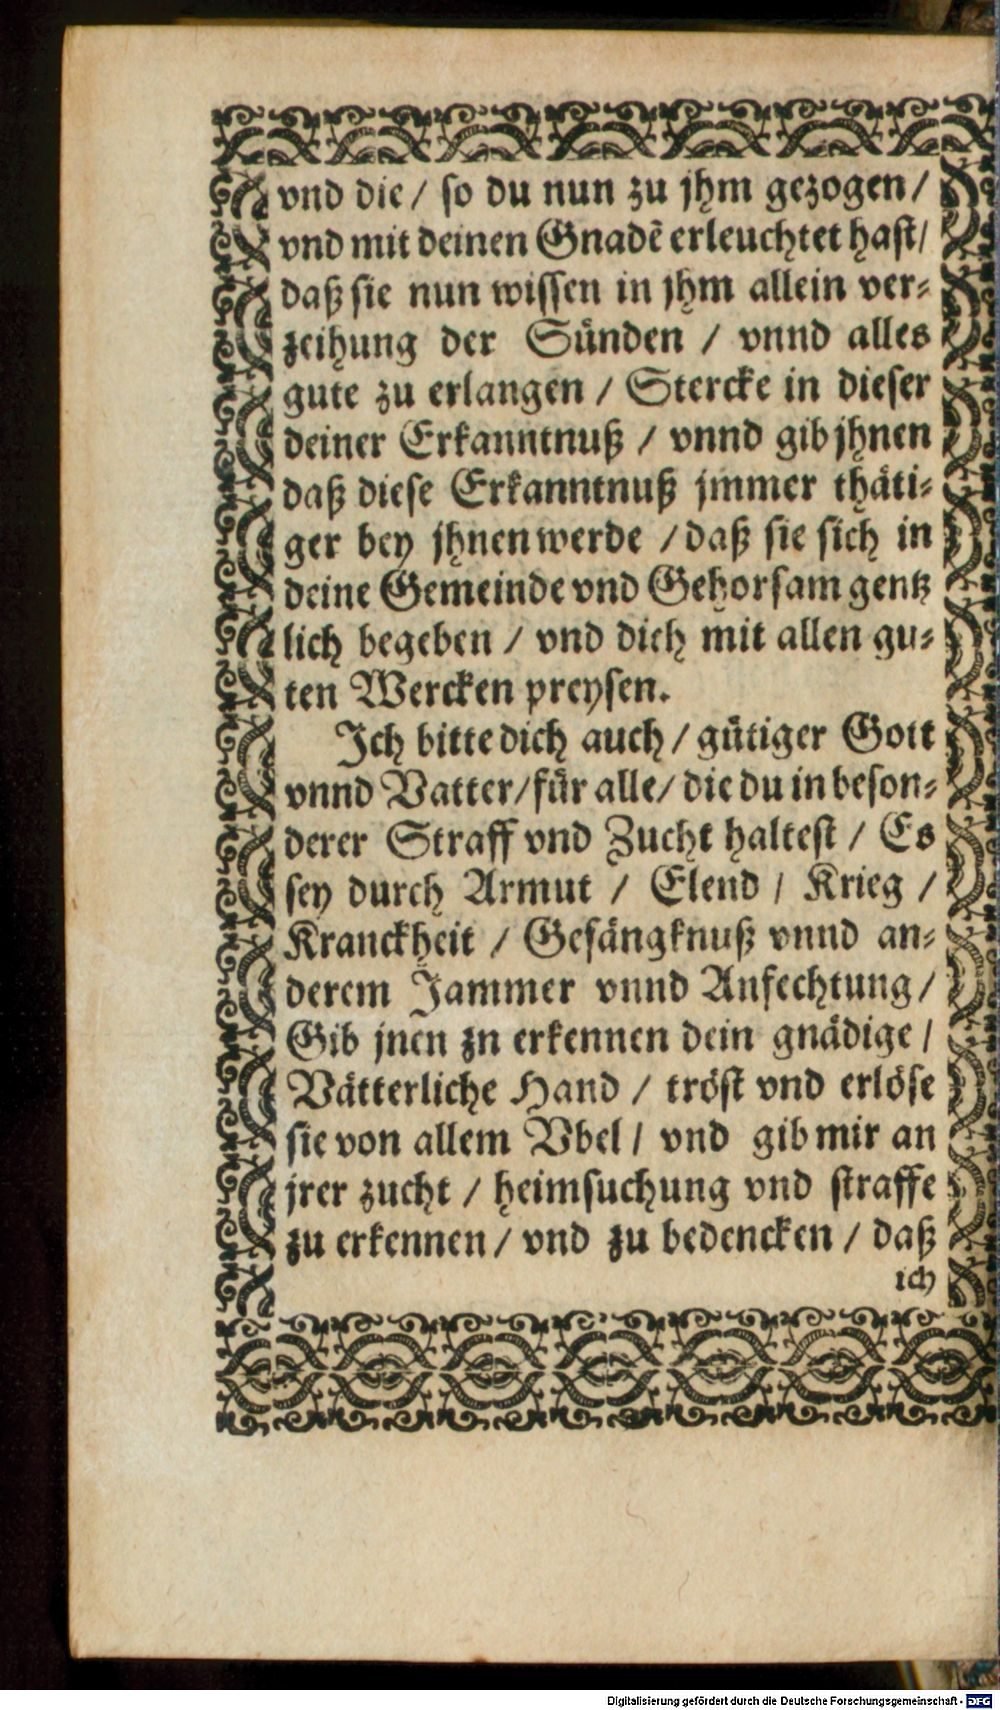 vnd die / so du nun zu jhm gezogen /
vnd mit deinen Gnadẽ erleuchtet hast /
daß sie nun wissen in jhm allein ver-
zeihung der Sünden / vnnd alles
gute zu erlangen / Stercke in dieser
deiner Erkanntnuß / vnnd gib jhnen
daß diese Erkanntnuß jmmer thäti-
ger bey jhnen werde / daß sie sich in
deine Gemeinde vnd Gehorsam gentz
lich begeben / vnd dich mit allen gu-
ten Wercken preysen.
Ich bitte dich auch / gütiger Gott
vnnd Vatter / für alle / die du in beson-
derer Straff vnd Zucht haltest / Es
sey durch Armut / Elend / Krieg /
Kranckheit / Gefängknuß vnnd an-
derem Jammer vnnd Anfechtung /
Gib jnen zn erkennen dein gnädige /
Vätterliche Hand / tröst vnd erlöse
sie von allem Vbel / vnd gib mir an
jrer zucht / heimsuchung vnd straffe
zu erkennen / vnd zu bedencken / daß
ich
Digitalisierung gefördert durch die Deutsche Forschungsgemeinschaft - DFG